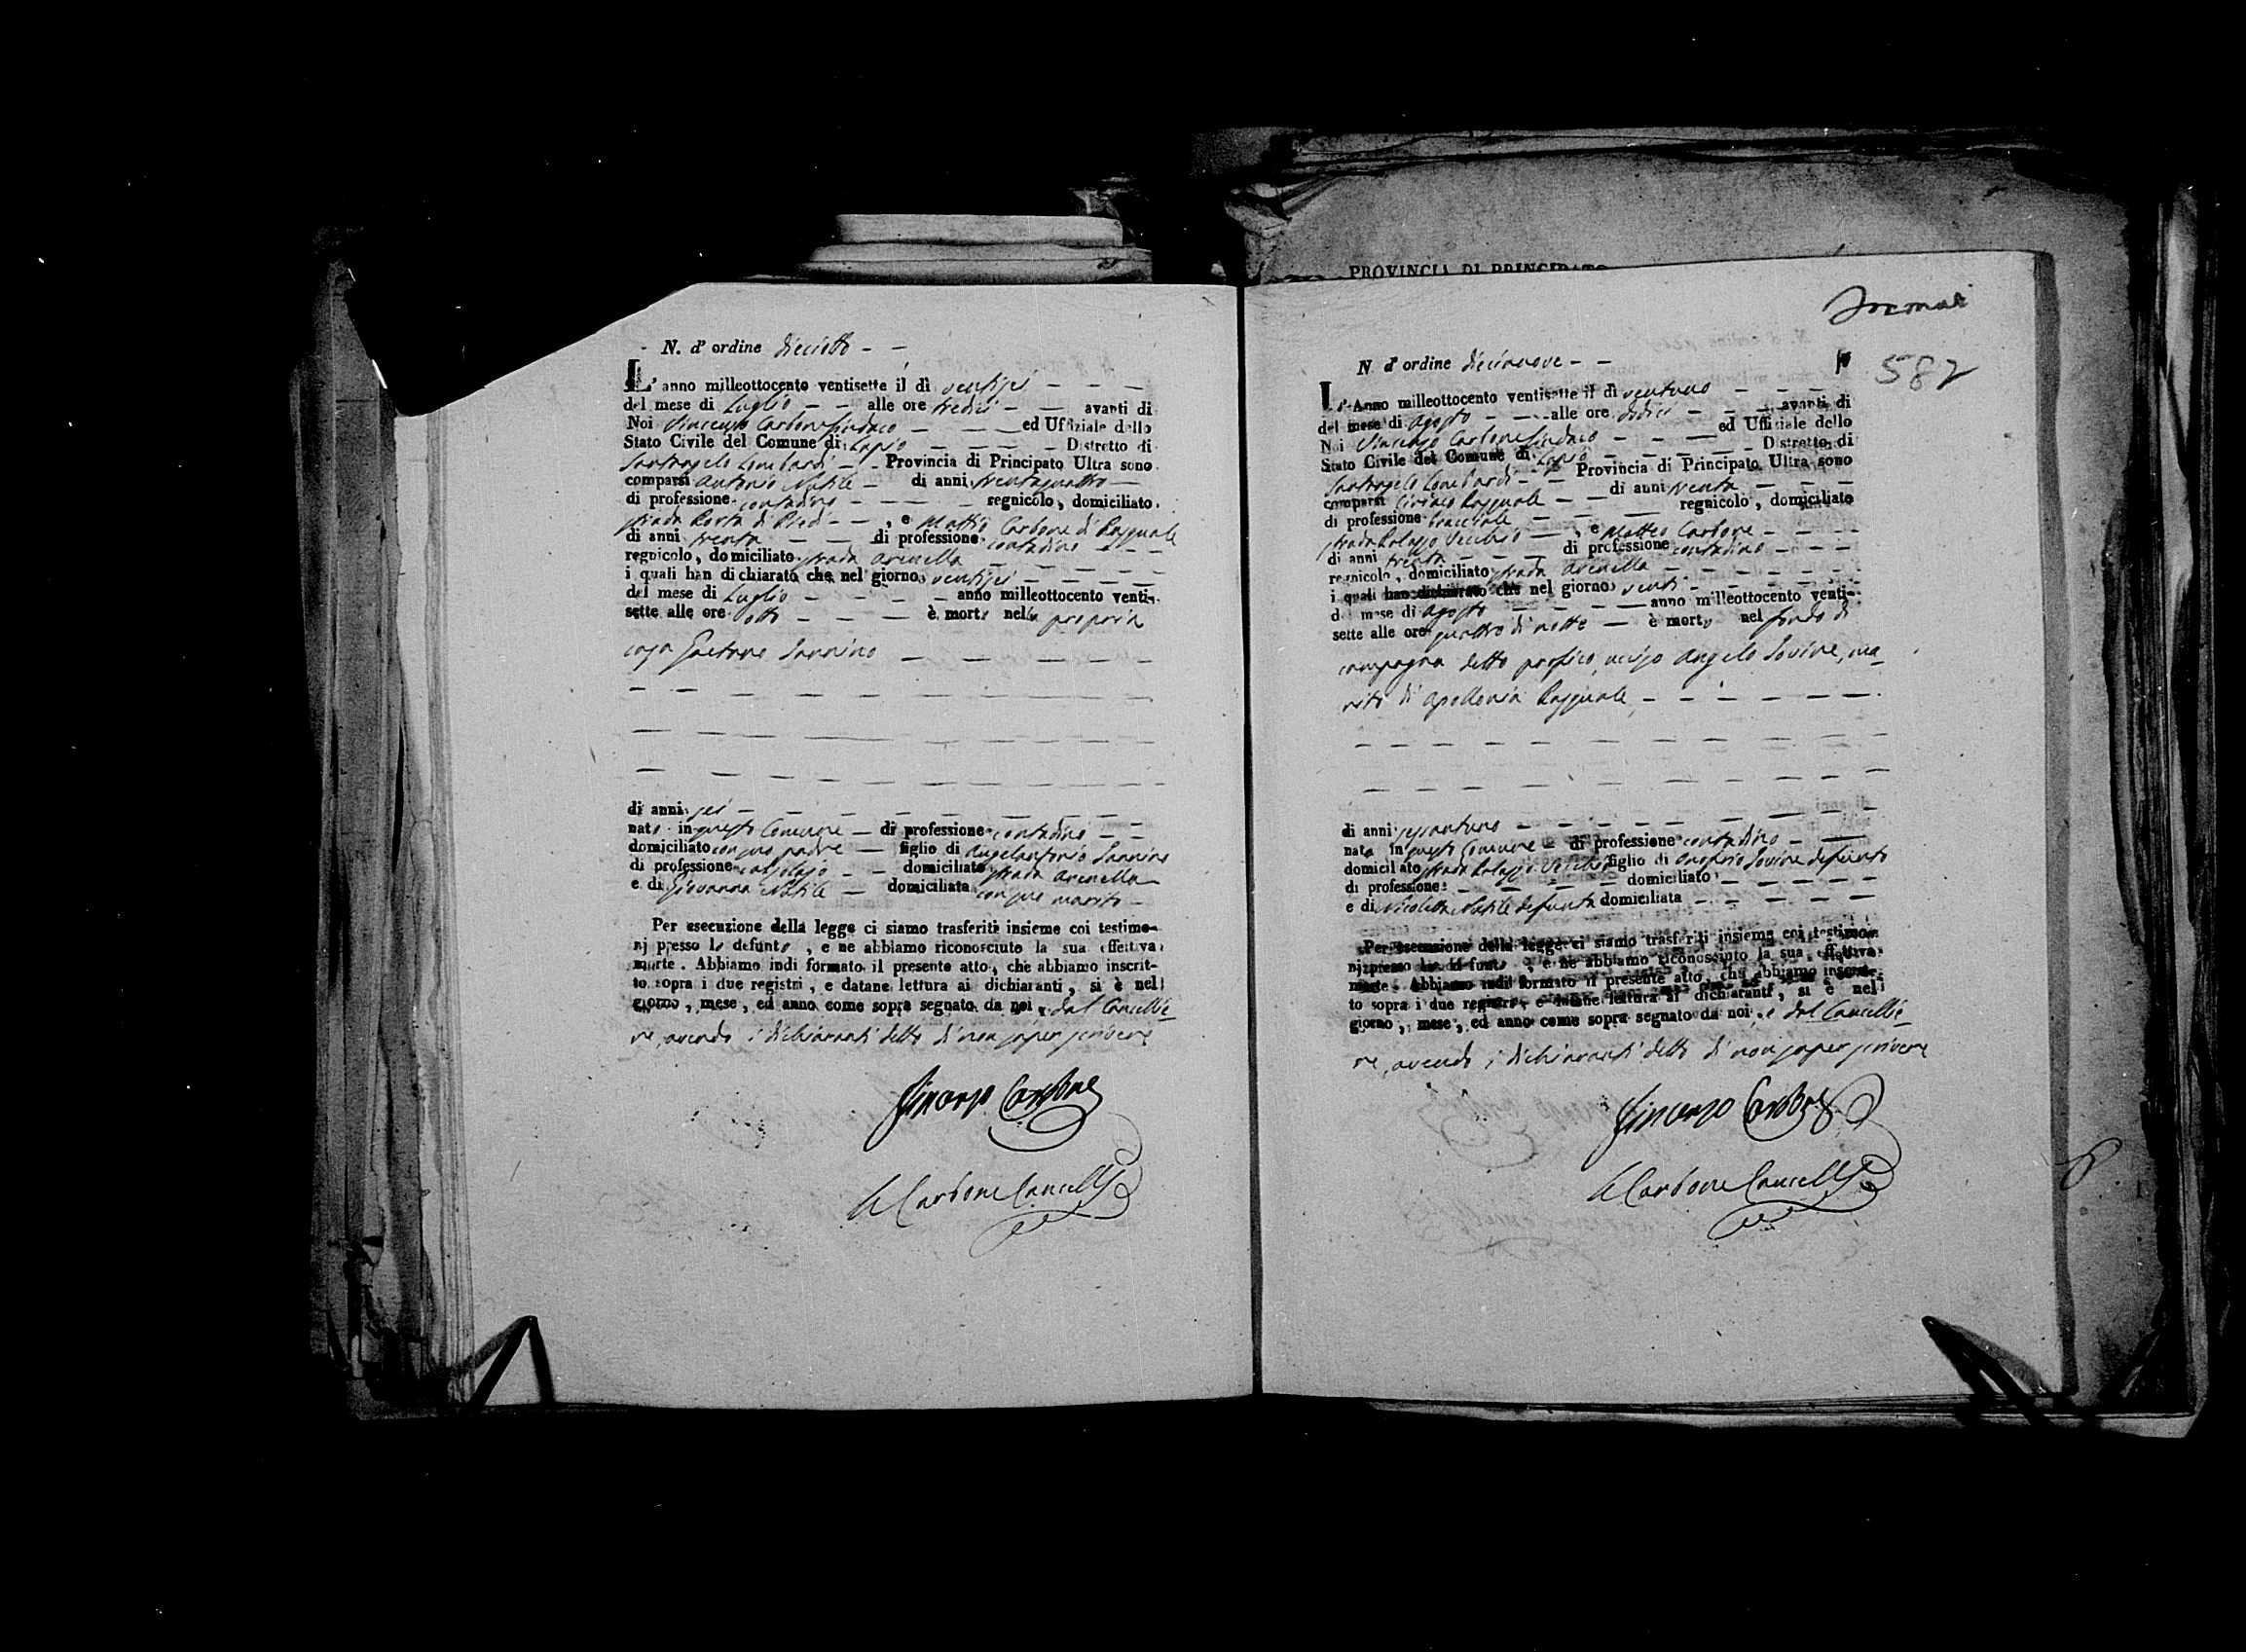 N. d' ordine dieciotto - -
L' anno milleottocento ventisette il dì ventisei - - -
del mese di Luglio - - alle ore tredici - - avanti di
Noi Vincenzo Carbone Sindaco - - - ed Uffiziale dello
Stato Civile del Comune di Lapio - - - - Distretto di
Santangelo Lombardi - - Provincia di Principato Ultra sono
comparsi Antonio Natile - di anni trentaquattro -
di professione contadino - - - - regnicolo, domiciliato
strada Porta di Piedi - - , e Mattio Carbone di Pasquale
di anni trenta - - - di professione contadino - - -
regnicolo, domiciliato strada Arenella - - - - -
i quali han dichiarato che nel giorno ventisei - - - -
del mese di Luglio - - - - anno milleottocento venti-
sette alle ore otto - - - è morto nella propria
casa Gaetano Iannino - - - - -
di anni sei - - - - - - - - -
nato in questo Comune - di professione contadino - -
domiciliato con suo padre - figlio di Angelantonio Iannino
di professione - - domiciliato strada Arenella
e di Giovanna Natile - domiciliata con suo marito -
Per esecuzione della legge ci siamo trasferiti insieme coi testimo-
nj presso lo defunto , e ne abbiamo riconosciuto la sua effettiva
morte . Abbiamo indi formato il presente atto , che abbiamo inscrit-
to sopra i due registri , e datane lettura ai dichiaranti , si è nel
giorno , mese , ed anno come sopra segnato da noi , e dal Cancellie-
re, avendo i dichiaranti detto di non saper scrivere
Vincenzo Carbone
Carbone Cancelle
PROVINCIA DI PRINCIPATO
582
N d' ordine diecinove - -
L' Anno milleottocento ventisette il dì ventuno - - - -
del mese di Agosto - - - alle ore dodici - - - avanti di
Noi Vincenzo Carbone Sindaco - - - ed Uffiziale dello
Stato Civile del Comune di Lapio - - - - - Distretto di
Santangelo Lombardi - - Provincia di Principato Ultra sono
comparsi Ciriaco Pasquale - - di anni trenta - - -
di professione bracciale - - - regnicolo , domiciliato
strada Palazzo Vecchio - , e Matteo Carbone - - - -
di anni trenta - - - - di professione contadino - - - -
regnicolo , domiciliato strada Arenella - - - - - -
i quali han dichiarato che nel giorno venti - - - - - -
del mese di Agosto - - - - anno milleottocento venti-
sette alle ore quattro di notte - è morto nel fondo di
campagna detto profico, ucciso Angelo Iovine, ma-
rito di Apollonia Pasquale - - - - - -
di anni sessantuno - - - - - - - -
nato in questo Comune - di professione contadino - -
domiciliato strada Palazzo Vecchio figlio di Onofrio Iovine defunto
di professione - - - - - domiciliato - - - - -
e di Nicoletta Natile defunta domiciliata - - - - -
Per esecuzione della legge ci siamo trasferiti insieme coi testimo-
nj presso lo defunto , e ne abbiamo riconosciuto la sua effettiva
morte . Abbiamo indi formato il presente atto , che abbiamo inscrit-
to sopra i due registri , e datane lettura ai dichiaranti , si è nel
giorno , mese , ed anno come sopra segnato da noi , e dal Cancellie-
re, avendo i dichiaranti detto di non saper scrivere
Vincenzo Carbone
Carbone Cancelle